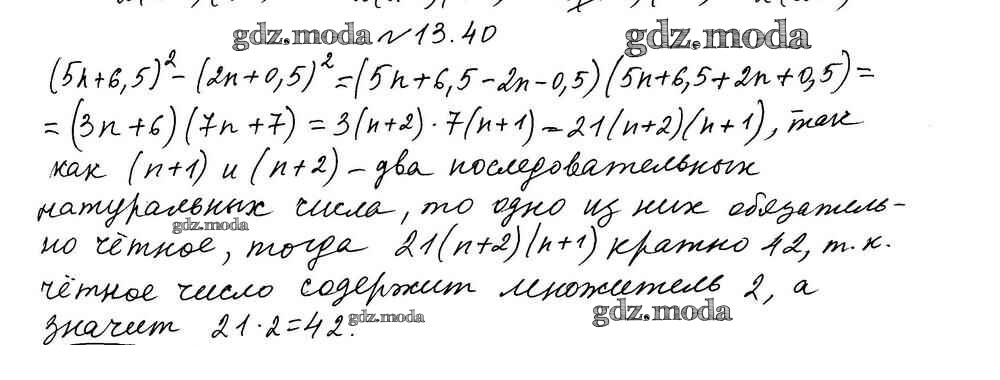 gdz.moda № 13.40 gdz.moda
(5n+6,5)² - (2n+0,5)² = (5n+6,5-2n-0,5)(5n+6,5+2n+0,5) =
= (3n+6)(7n+7) = 3(n+2)·7(n+1) = 21(n+2)(n+1), так
как (n+1) и (n+2) - два последовательных
натуральных числа, то одно из них обязатель-
gdz.moda
но чётное, тогда 21(n+2)(n+1) кратно 42, т.к.
чётное число содержит множитель 2, а
значит 21·2=42. gdz.moda gdz.moda